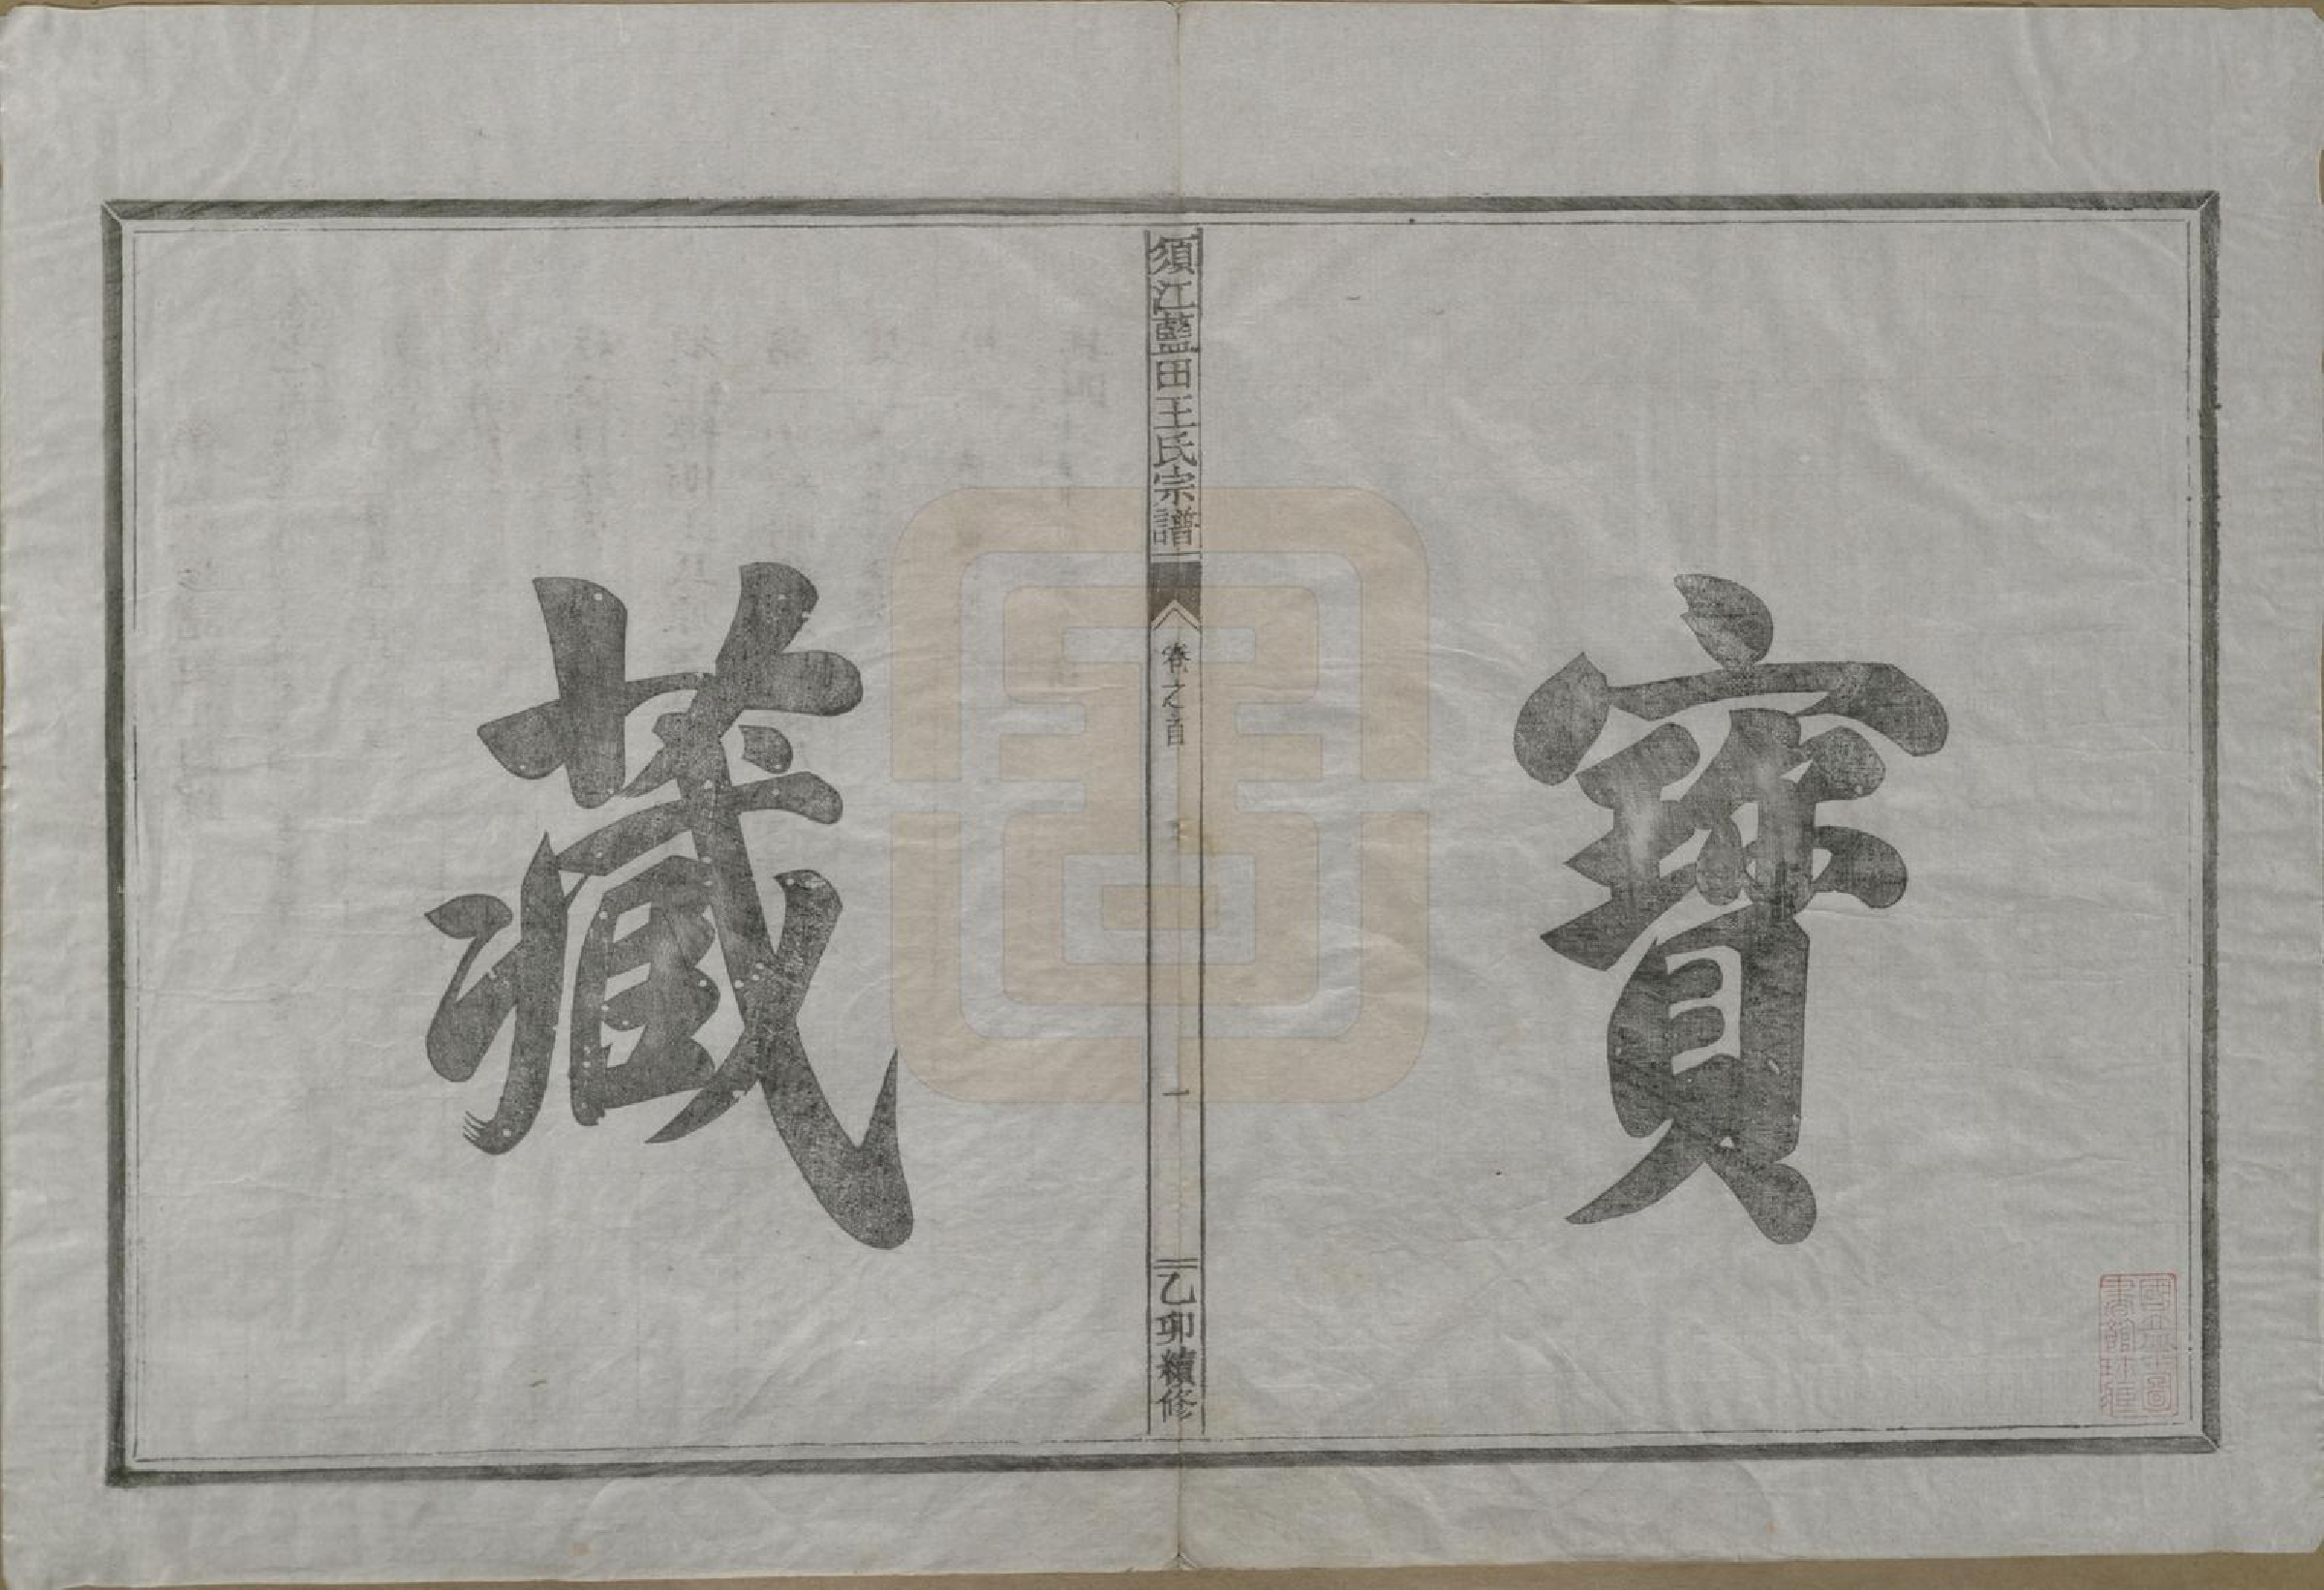 寶
須江藍田王氏宗譜
卷之首
一
乙卯續修
藏
國立北平圖
書館珍藏